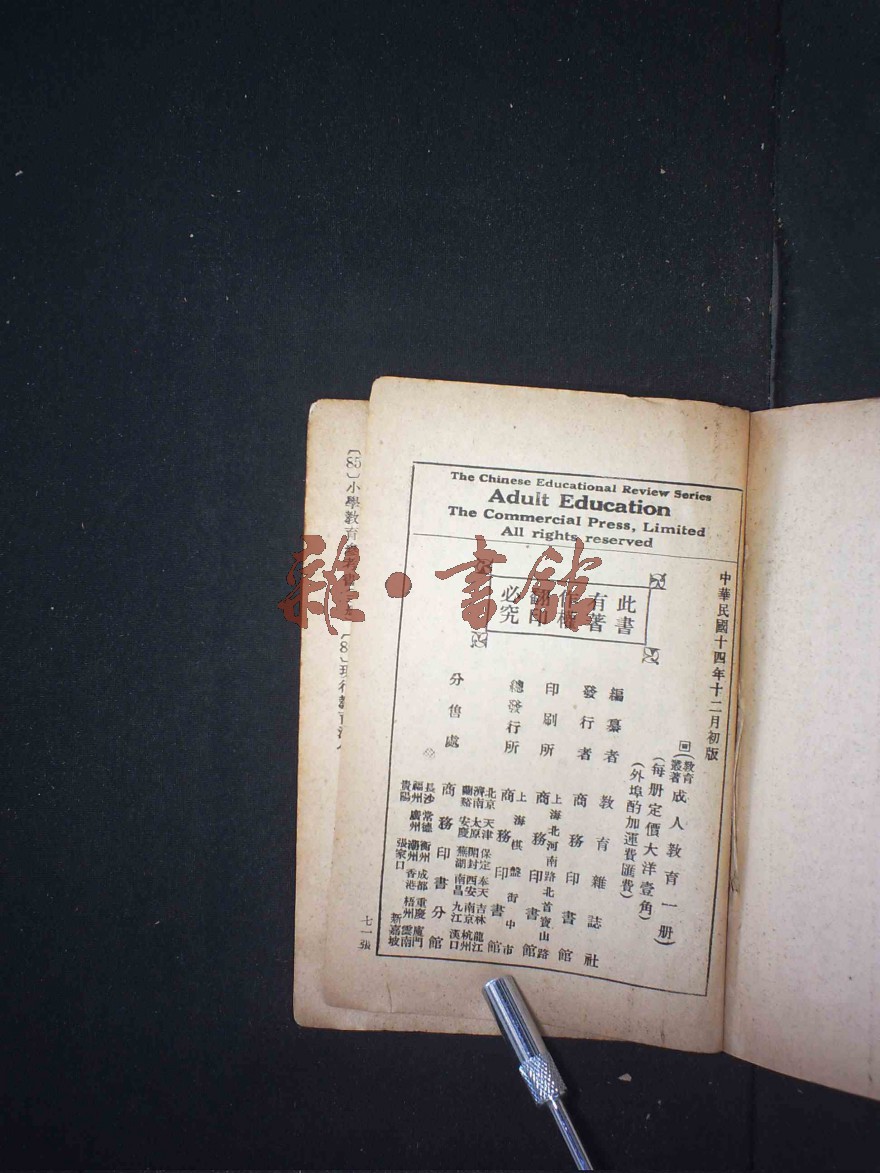 The Chinese Educational Review Series
Adult Education
The Commercial Press, Limited
All rights reserved
中華民國十四年十二月初版
此書
有著
作權
翻印
必究
(教育叢著)成人教育一册
(每册定價大洋壹角)
(外埠酌加運費匯費)
編纂者 教育雜誌社
發行者 商務印書館
上海北河南路北首寶山路
印刷所 商務印書館
上海棋盤街中市
總發行所 商務印書館
北京 天津 保定 奉天 吉林 龍江
濟南 太原 開封 西安 南京 杭州
蘭谿 安慶 蕪湖 南昌 九江 漢口
分售處 商務印書分館
長沙 常德 衡州 成都 重慶 廈門
福州 廣州 潮州 香港 梧州 雲南
貴陽 張家口 新嘉坡
七一張
〔85〕小學教育
雜·書館